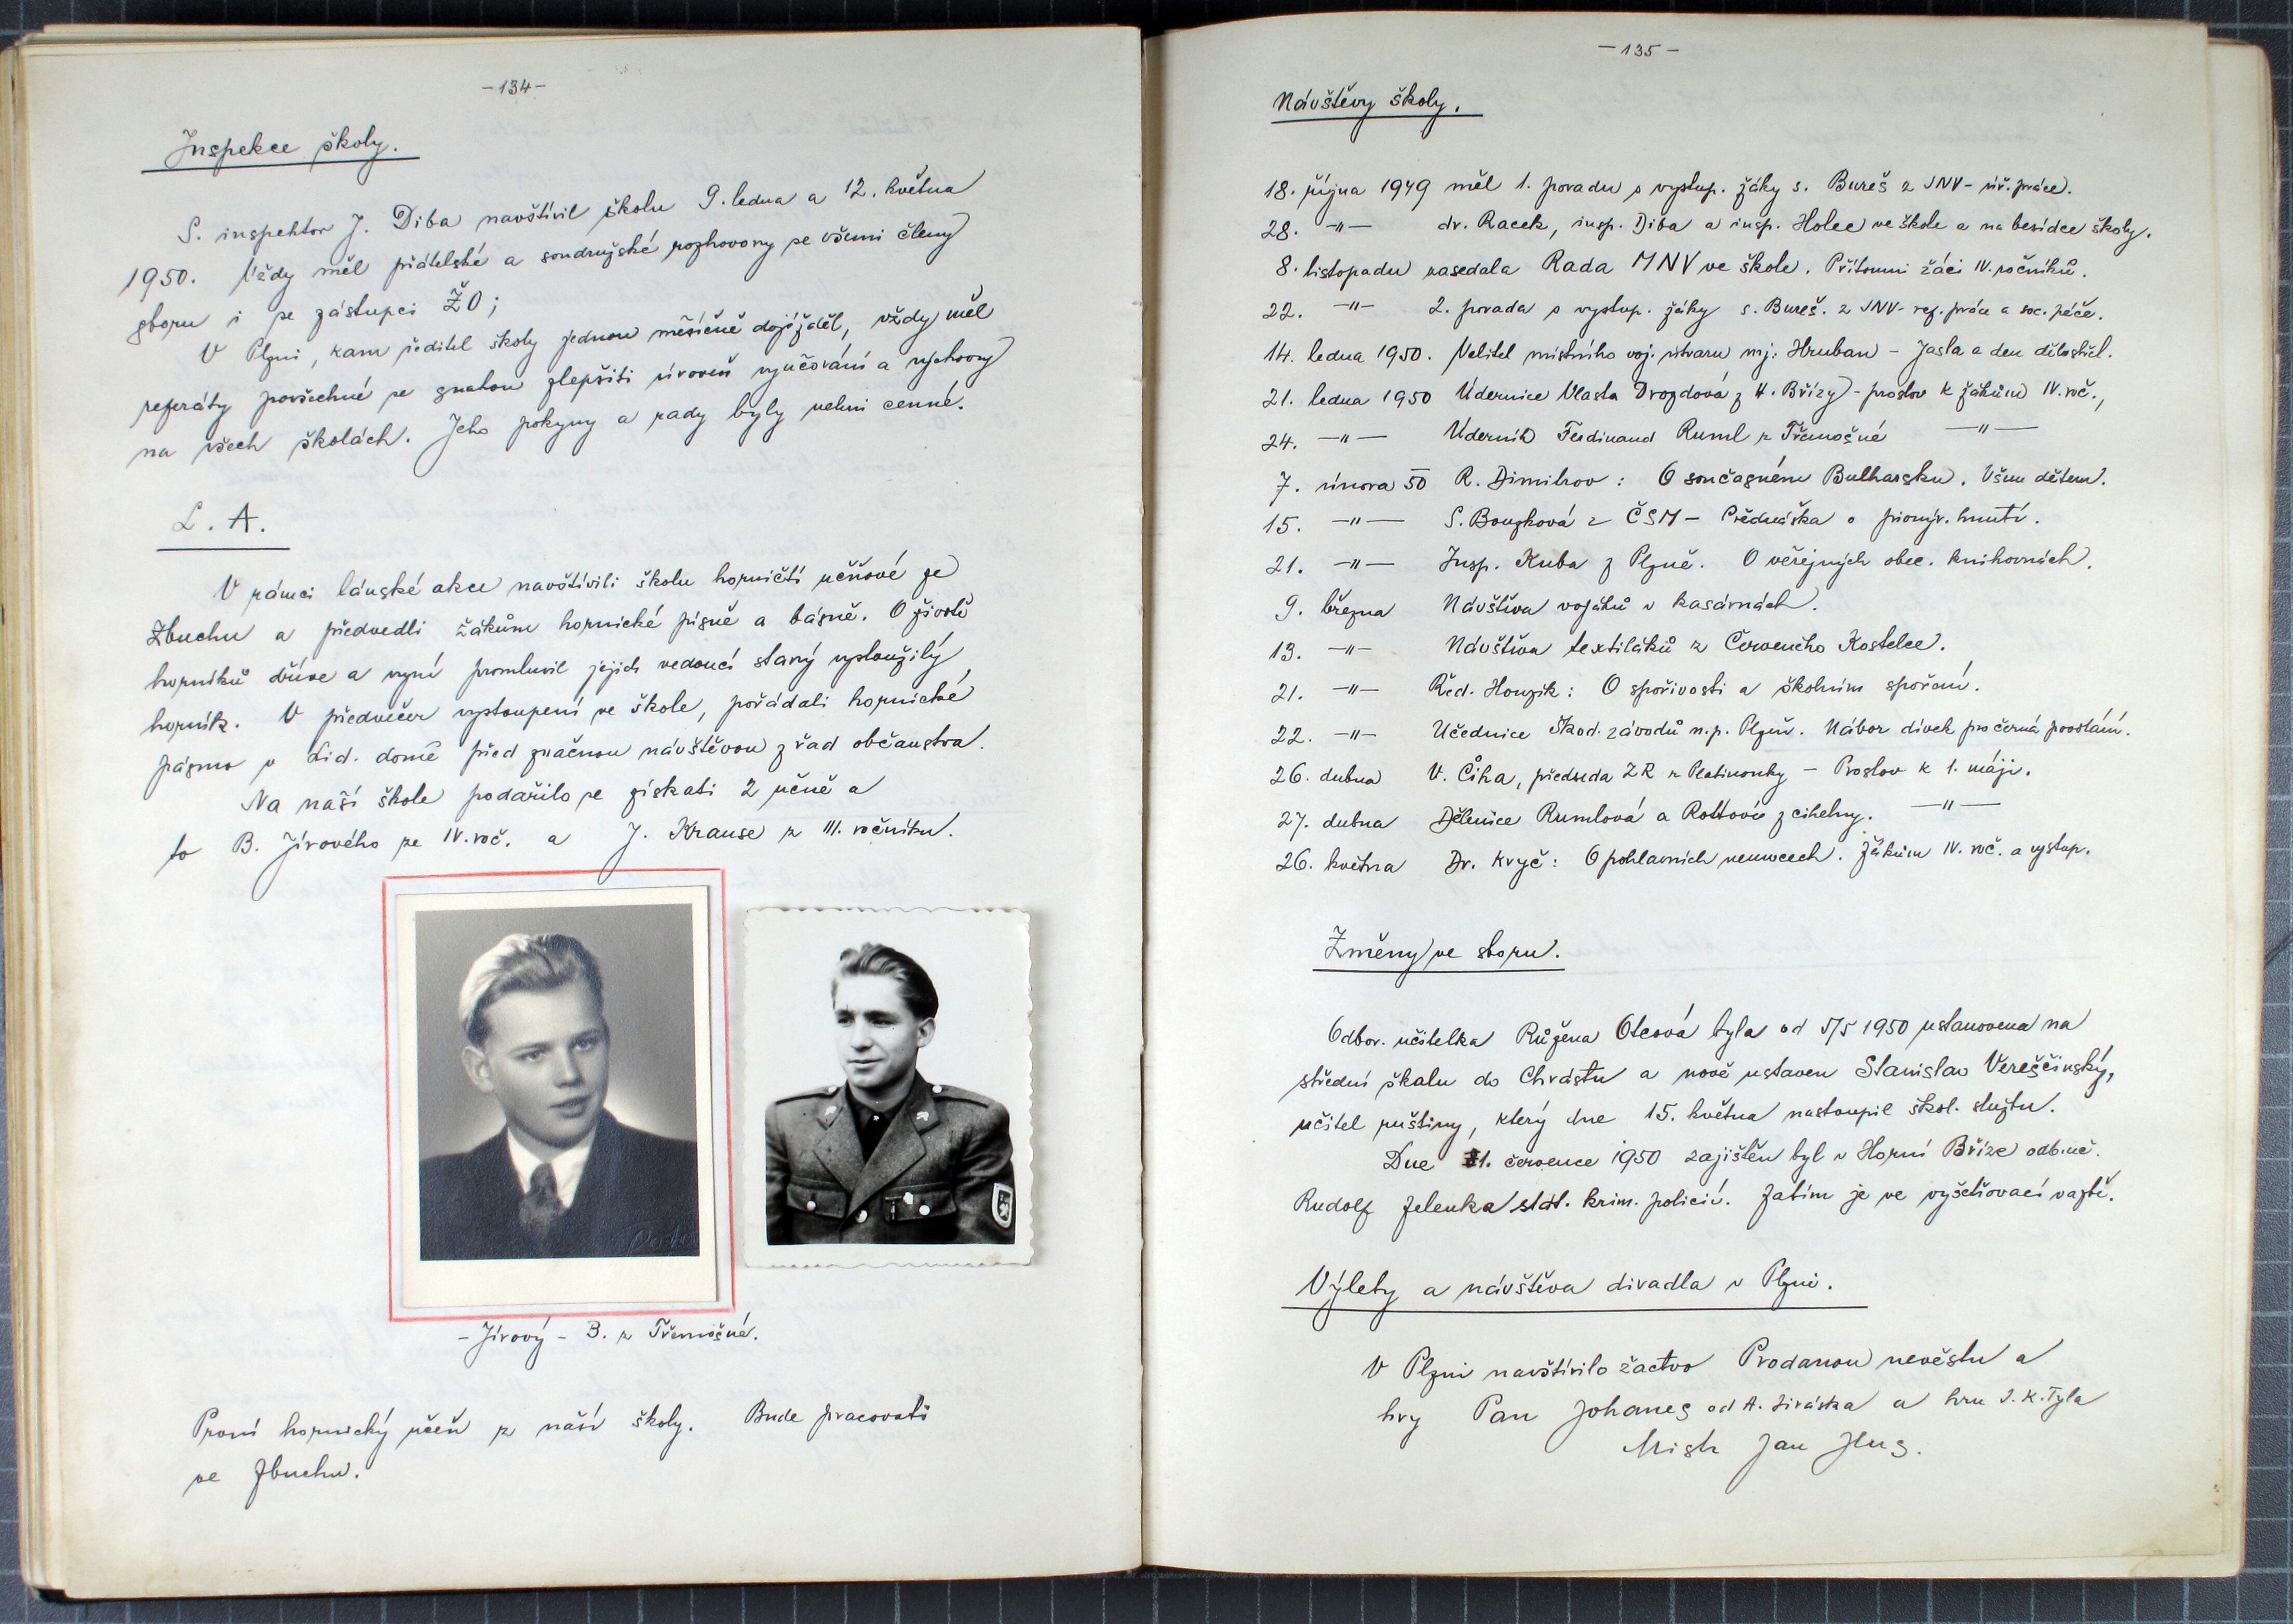 -134-
Inspekce školy.
S. inspektor J. Diba navštívil školu 9. ledna a 12. května
1950. Vždy měl přátelské a soudružské rozhovory se všemi členy
sboru i se zástupci ŽO;
V Plzni, kam ředitel školy jednou měsíčně dojížděl, vždy měl
referáty povšechné se snahou zlepšiti úroveň vyučování a výchovy
na všech školách. Jeho pokyny a rady byly velmi cenné.
L. A.
V rámci lánské akce navštívili školu horničtí učňové ze
Zbuchu a předvedli žákům hornické písně a básně. O životě
horníků dříve a nyní promluvil jejich vedoucí starý vysloužilý
horník. V předvečer vystoupení ve škole, pořádali hornické
pásmo v Lid. domě před značnou návštěvou z řad občanstva.
Na naší škole podařilo se získati 2 učně a
to B. Jírového ze IV. roč. a J. Krause z III. ročníku.
- Jírový - B. z Třemošné.
První hornický učeň z naší školy. Bude pracovati
ve Zbuchu.
-135-
Návštěvy školy.
18. října 1949 měl 1. poradu s vystup. žáky s. Bureš z JNV - úř. práce.
28. -"- dr. Racek, insp. Diba a insp. Holec ve škole a na besídce školy.
8. listopadu zasedala Rada MNV ve škole. Přítomni žáci IV. ročníků.
22. -"- 2. porada s vystup. žáky s. Bureš. z JNV - ref. práce a soc. péče.
14. ledna 1950. Velitel místního voj. útvaru mj. Hruban - Jasla a den dělostřel.
21. ledna 1950 Údernice Vlasta Drozdová z H. Břízy - proslov k žákům IV. roč.,
24. -"- Úderník Ferdinand Ruml z Třemošné -"-
7. února 50 R. Dimitrov: O současném Bulharsku. Všem dětem.
15. -"- S. Bouzková z ČSM - Přednáška o pionýr. hnutí.
21. -"- Insp. Kuba z Plzně. O veřejných obec. knihovnách.
9. března Návštěva vojáků v kasárnách.
13. -"- Návštěva textiláků z Červeného Kostelce.
21. -"- Řed. Houzík: O spořivosti a školním spoření.
22. -"- Učednice Škod. závodů n. p. Plzeň. Nábor dívek pro černá povolání.
26. dubna V. Číha, předseda ZR z Platinonky - Proslov k 1. máji.
27. dubna Dělnice Rumlová a Rottová z cihelny. -"-
26. května Dr. Kryč: O pohlavních nemocech. Žákům IV. roč. a vystup.
Změny ve sboru.
Odbor. učitelka Růžena Otcová byla od 5/5 1950 ustanovena na
střední školu do Chrástu a nově ustaven Stanislav Vereščinský,
učitel ruštiny, který dne 15. května nastoupil škol. službu.
Dne 31. července 1950 zajištěn byl v Horní Bříze odb. uč.
Rudolf Zelenka stát. krim. policií. Zatím je ve vyšetřovací vazbě.
Výlety a návštěva divadla v Plzni.
V Plzni navštívilo žactvo Prodanou nevěstu a
hry Pan Johanes od A. Jiráska a hru J. K. Tyla
Mistr Jan Hus.